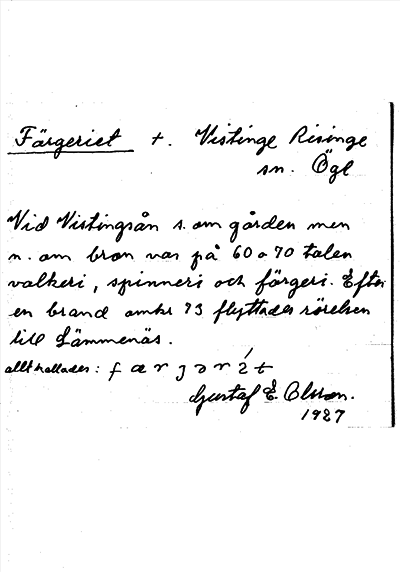 Färgeriet t. Vistinge Risinge
sn. Ögl
Vid Vistingsån s. om gården men
n. om bron var på 60 o 70 talen
valkeri, spinneri och färgeri. Efter
en brand omkr 73 flyttades rörelsen
till Lämmenäs.
allt kallades:
Gustaf E. Olsson.
1927